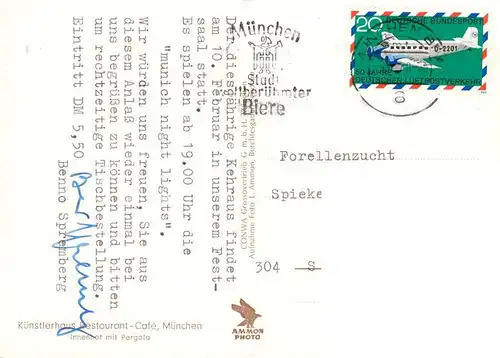 Der diesjährige Kehraus findet
am 10. Februar in unserem Fest-
saal statt.
Es spielen ab 19.00 Uhr die
"munich night lights".
Wir würden uns freuen, Sie aus
diesem Anlaß wieder einmal bei
uns begrüßen zu können und bitten
um rechtzeitige Tischbestellung.
Eintritt DM 5,50
Benno Spremberg
Künstlerhaus Restaurant-Café, München
Innenhof mit Pergola
AMMON
PHOTO
München
Stadt
weltberühmter
Biere
20 DEUTSCHE BUNDESPOST
D-2201
50 JAHRE
DEUTSCHER LUFTPOSTVERKEHR
Forellenzucht
Spieke
304 S